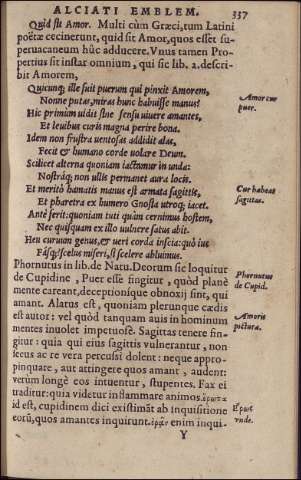 ALCIATI EMBLEM. 337
Quid sit Amor. Multi cùm Græci, tum Latini
poëtæ cecinerunt, quid sit Amor, quos esset su
peruacaneum hûc adducere. Vnus tamen Pro
pertius sit instar omnium, qui sic lib. 2. descri-
bit Amorem,
Quicunq; ille fuit puerum qui pinxit Amorem,
Nonne putas, miras hunc habuisse manus?
Amor cur
puer.
Hic primum uidit sine sensu uiuere amantes,
Et leuibus curis magna perire bona.
Idem non frustra uentosas addidit alas,
Fecit & humano corde uolare Deum.
Scilicet alterna quoniam iactamur in unda:
Nostráq; non ullis permanet aura locis.
Et meritò hamatis manus est armata sagittis,
Et pharetra ex humero Gnosia utroq; iacet.
Cur habeat
sagittas.
Ante ferit: quoniam tuti quàm cernimus hostem,
Nec quisquam ex illo uulnere sanus abit.
Heu curuum genus, & ueri corda inscia: quò ius
Fásq; scelus miseri, si scelere abluimus.
Phornutus in lib. de Natu. Deorum sic loquitur
de Cupidine, Puer esse fingitur, quòd planè
Phornutus
de Cupid.
mente careant, deceptionique obnoxij sint, qui
amant. Alatus est, quoniam plerunque cædis
est autor: vel quòd tanquam auis in hominum
Amoris
pictura.
mentes inuolet impetuosè. Sagittas tenere fin-
gitur: quia qui eius sagittis vulnerantur, non
secus ac re vera percussi dolent: neque appro-
pinquare, aut attingere quos amant, audent:
verùm longè eos intuentur, stupentes. Fax ei
traditur: quia videtur inflammare animos.
id est, cupidinem dici existimāt ab inquisitione
eorū, quos amantes inquirunt. enim inqui-
Y